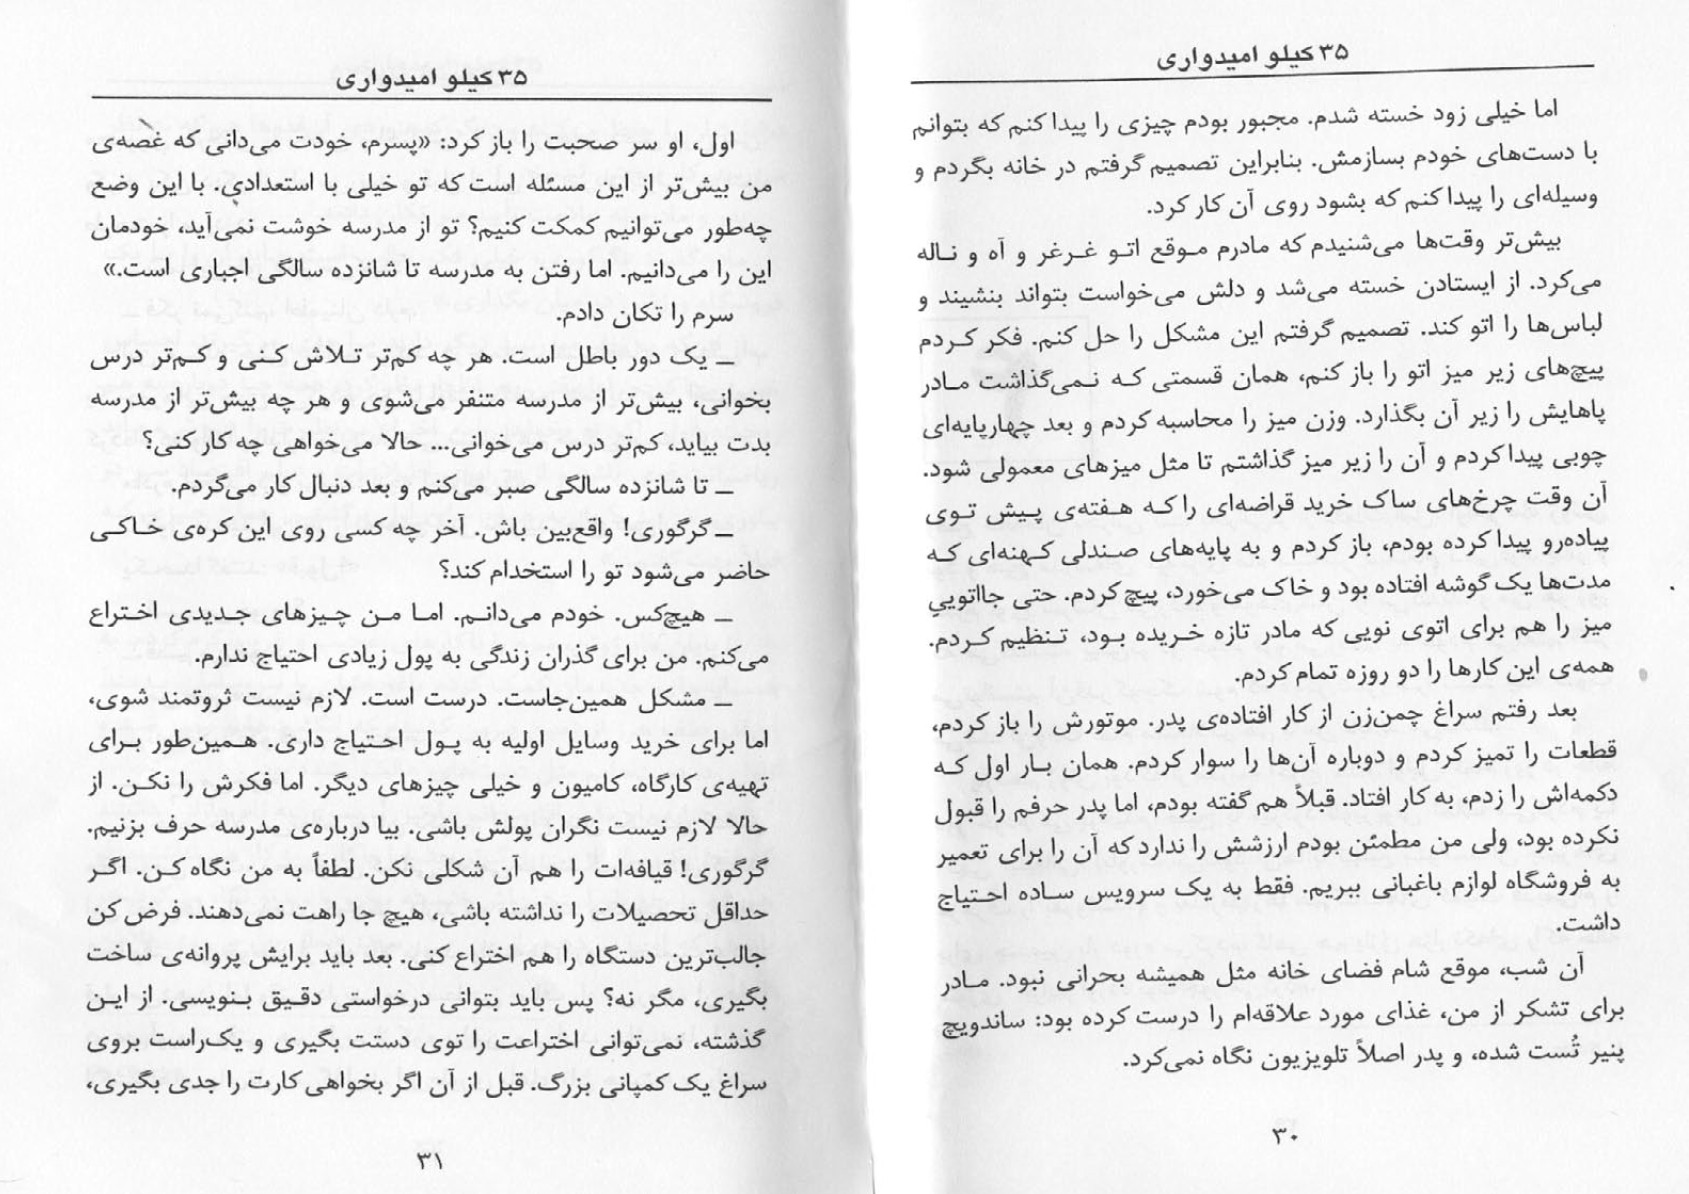 ۳۵ کیلو امیدواری
اما خیلی زود خسته شدم. مجبور بودم چیزی را پیدا کنم که بتوانم
با دست‌های خودم بسازمش. بنابراین تصمیم گرفتم در خانه بگردم و
وسیله‌ای را پیدا کنم که بشود روی آن کار کرد.
بیش‌تر وقت‌ها می‌شنیدم که مادرم موقع اتو غرغر و آه و ناله
می‌کرد. از ایستادن خسته می‌شد و دلش می‌خواست بتواند بنشیند و
لباس‌ها را اتو کند. تصمیم گرفتم این مشکل را حل کنم. فکر کردم
پیچ‌های زیر میز اتو را باز کنم، همان قسمتی که نمی‌گذاشت مادر
پاهایش را زیر آن بگذارد. وزن میز را محاسبه کردم و بعد چهارپایه‌ای
چوبی پیدا کردم و آن را زیر میز گذاشتم تا مثل میزهای معمولی شود.
آن وقت چرخ‌های ساک خرید قراضه‌ای را که هفته‌ی پیش توی
پیاده‌رو پیدا کرده بودم، باز کردم و به پایه‌های صندلی کهنه‌ای که
مدت‌ها یک گوشه افتاده بود و خاک می‌خورد، پیچ کردم. حتی جااتوییِ
میز را هم برای اتوی نویی که مادر تازه خریده بود، تنظیم کردم.
همه‌ی این کارها را دو روزه تمام کردم.
بعد رفتم سراغ چمن‌زن از کار افتاده‌ی پدر. موتورش را باز کردم،
قطعات را تمیز کردم و دوباره آن‌ها را سوار کردم. همان بار اول که
دکمه‌اش را زدم، به کار افتاد. قبلاً هم گفته بودم، اما پدر حرفم را قبول
نکرده بود، ولی من مطمئن بودم ارزشش را ندارد که آن را برای تعمیر
به فروشگاه لوازم باغبانی ببریم. فقط به یک سرویس ساده احتیاج
داشت.
آن شب، موقع شام فضای خانه مثل همیشه بحرانی نبود. مادر
برای تشکر از من، غذای مورد علاقه‌ام را درست کرده بود: ساندویچ
پنیر تُست شده، و پدر اصلاً تلویزیون نگاه نمی‌کرد.
۳۰
۳۵ کیلو امیدواری
اول، او سر صحبت را باز کرد: «پسرم، خودت می‌دانی که غصه‌ی
من بیش‌تر از این مسئله است که تو خیلی با استعدادی. با این وضع
چه‌طور می‌توانیم کمکت کنیم؟ تو از مدرسه خوشت نمی‌آید، خودمان
این را می‌دانیم. اما رفتن به مدرسه تا شانزده سالگی اجباری است.»
سرم را تکان دادم.
ــ یک دور باطل است. هر چه کم‌تر تلاش کنی و کم‌تر درس
بخوانی، بیش‌تر از مدرسه متنفر می‌شوی و هر چه بیش‌تر از مدرسه
بدت بیاید، کم‌تر درس می‌خوانی... حالا می‌خواهی چه کار کنی؟
ــ تا شانزده سالگی صبر می‌کنم و بعد دنبال کار می‌گردم.
ــ گرگوری! واقع‌بین باش. آخر چه کسی روی این کره‌ی خاکی
حاضر می‌شود تو را استخدام کند؟
ــ هیچ‌کس. خودم می‌دانم. اما من چیزهای جدیدی اختراع
می‌کنم. من برای گذران زندگی به پول زیادی احتیاج ندارم.
ــ مشکل همین‌جاست. درست است. لازم نیست ثروتمند شوی،
اما برای خرید وسایل اولیه به پول احتیاج داری. همین‌طور برای
تهیه‌ی کارگاه، کامیون و خیلی چیزهای دیگر. اما فکرش را نکن. از
حالا لازم نیست نگران پولش باشی. بیا درباره‌ی مدرسه حرف بزنیم.
گرگوری! قیافه‌ات را هم آن شکلی نکن. لطفاً به من نگاه کن. اگر
حداقل تحصیلات را نداشته باشی، هیچ جا راهت نمی‌دهند. فرض کن
جالب‌ترین دستگاه را هم اختراع کنی. بعد باید برایش پروانه‌ی ساخت
بگیری، مگر نه؟ پس باید بتوانی درخواستی دقیق بنویسی. از این
گذشته، نمی‌توانی اختراعت را توی دستت بگیری و یک‌راست بروی
سراغ یک کمپانی بزرگ. قبل از آن اگر بخواهی کارت را جدی بگیری،
۳۱